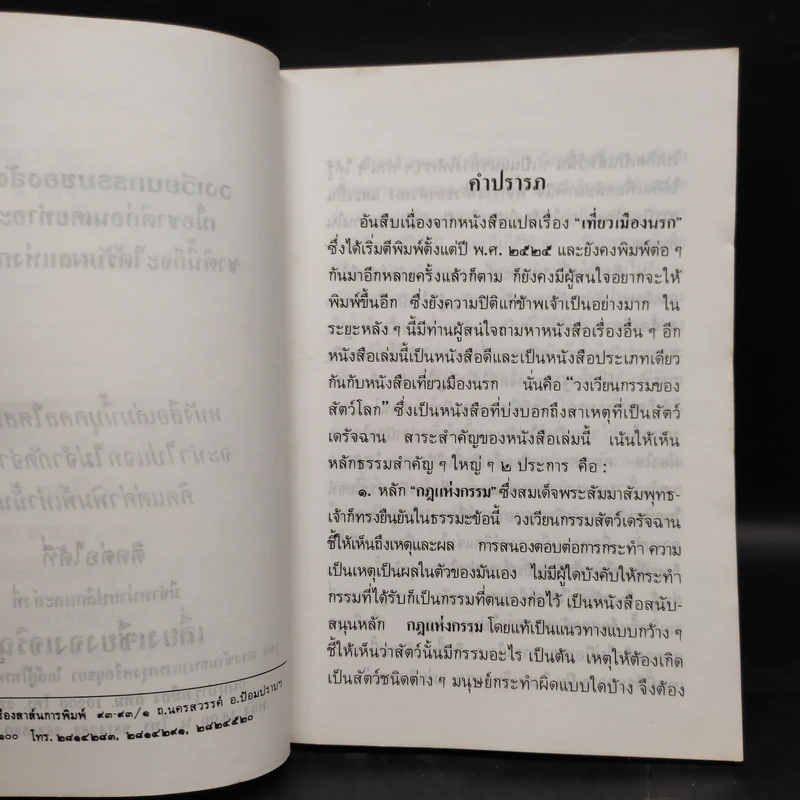 คำปรารภ
อันสืบเนื่องจากหนังสือแปลเรื่อง “เที่ยวเมืองนรก”
ซึ่งได้เริ่มตีพิมพ์ตั้งแต่ปี พ.ศ. ๒๕๒๕ และยังคงพิมพ์ต่อ ๆ
กันมาอีกหลายครั้งแล้วก็ตาม ก็ยังคงมีผู้สนใจอยากจะให้
พิมพ์ขึ้นอีก ซึ่งยังความปิติแก่ข้าพเจ้าเป็นอย่างมาก ใน
ระยะหลัง ๆ นี้มีท่านผู้สนใจถามหาหนังสือเรื่องอื่น ๆ อีก
หนังสือเล่มนี้เป็นหนังสือดีและเป็นหนังสือประเภทเดียว
กันกับหนังสือเที่ยวเมืองนรก นั่นคือ “วงเวียนกรรมของ
สัตว์โลก” ซึ่งเป็นหนังสือที่บ่งบอกถึงสาเหตุที่เป็นสัตว์
เดรัจฉาน สาระสำคัญของหนังสือเล่มนี้ เน้นให้เห็น
หลักธรรมสำคัญ ๆ ใหญ่ ๆ ๒ ประการ คือ :
๑. หลัก “กฎแห่งกรรม” ซึ่งสมเด็จพระสัมมาสัมพุทธ-
เจ้าก็ทรงยืนยันในธรรมะข้อนี้ วงเวียนกรรมสัตว์เดรัจฉาน
ชี้ให้เห็นถึงเหตุและผล การสนองตอบต่อการกระทำ ความ
เป็นเหตุเป็นผลในตัวของมันเอง ไม่มีผู้ใดบังคับให้กระทำ
กรรมที่ได้รับก็เป็นกรรมที่ตนเองก่อไว้ เป็นหนังสือสนับ-
สนุนหลัก กฎแห่งกรรม โดยแท้เป็นแนวทางแบบกว้าง ๆ
ชี้ให้เห็นว่าสัตว์นั้นมีกรรมอะไร เป็นต้น เหตุให้ต้องเกิด
เป็นสัตว์ชนิดต่าง ๆ มนุษย์กระทำผิดแบบใดบ้าง จึงต้อง
รืองสาส์นการพิมพ์ ๙๓-๙๓/๑ ถ.นครสวรรค์ อ.ป้อมปราบฯ
๑๐๐ โทร. ๒๘๑๔๒๘๓, ๒๘๑๔๒๙๑, ๒๘๒๔๕๒๐